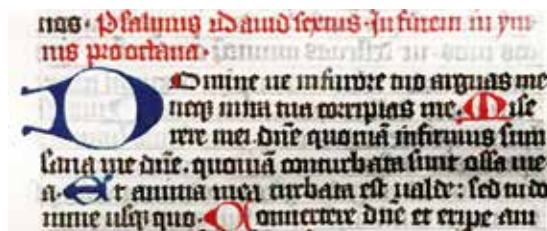 nos. Psalmus david sextus. In finem in ym-
nis pro octava.
Domine ne in furore tuo arguas me
neq; in ira tua corripias me. Mise
rere mei dn̄e quoniā infirmus sum
sana me dn̄e. quoniā conturbata sunt ossa me
a. Et anima mea turbata est valde: sed tu do
mine usq; quo. Convertere dn̄e et eripe ani